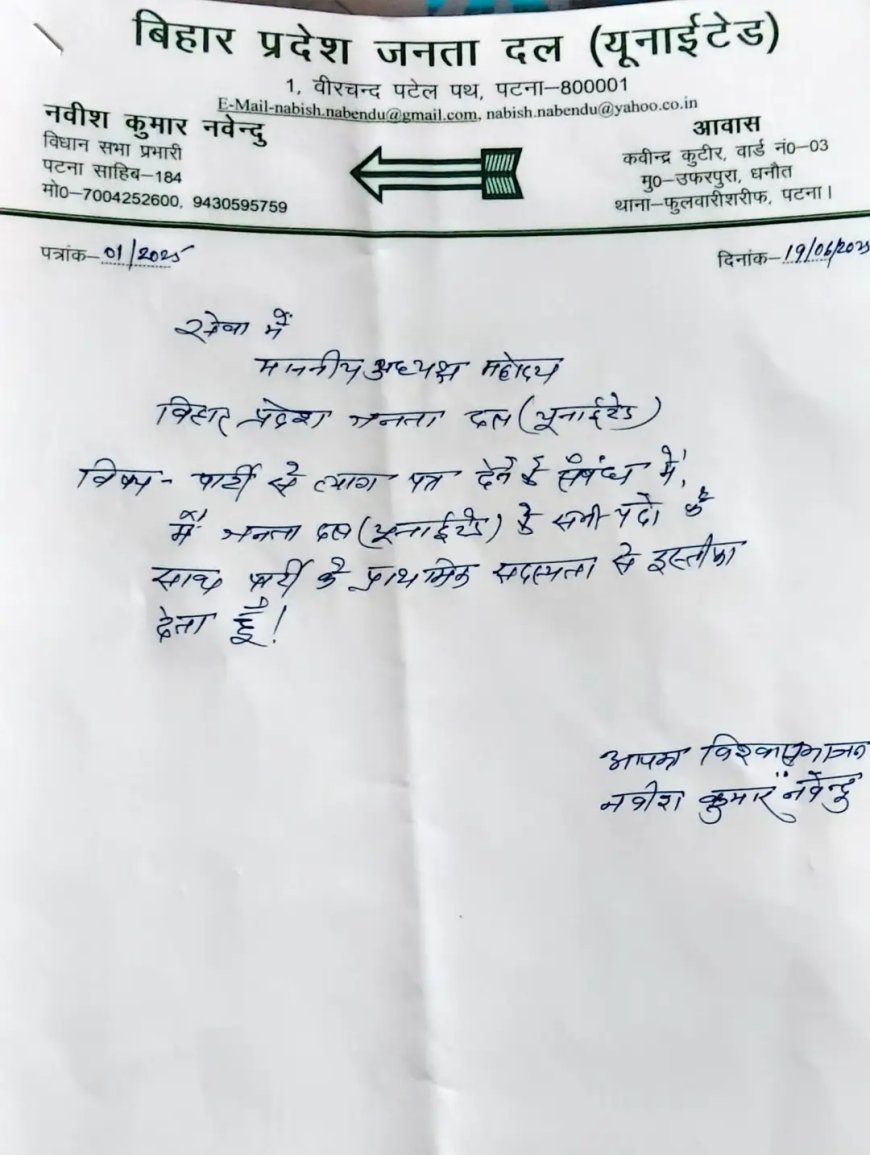 बिहार प्रदेश जनता दल (यूनाईटेड)
1, वीरचन्द पटेल पथ, पटना–800001
E-Mail-nabish.nabendu@gmail.com, nabish.nabendu@yahoo.co.in
नवीश कुमार नवेन्दु
विधान सभा प्रभारी
पटना साहिब–184
मो0–7004252600, 9430595759
आवास
कवीन्द्र कुटीर, वार्ड नं0–03
मु0–उफरपुरा, धनौत
थाना–फुलवारीशरीफ, पटना।
पत्रांक–01/2025
दिनांक–19/06/2025
सेवा में
माननीय अध्यक्ष महोदय
बिहार प्रदेश जनता दल (यूनाईटेड)
विषय - पार्टी से त्याग पत्र देने के संबंध में,
मैं जनता दल (यूनाईटेड) के सभी पदो के
साथ पार्टी के प्राथमिक सदस्यता से इस्तीफा
देता हूँ!
आपका विश्वासभाजन
नवीश कुमार नवेन्दु